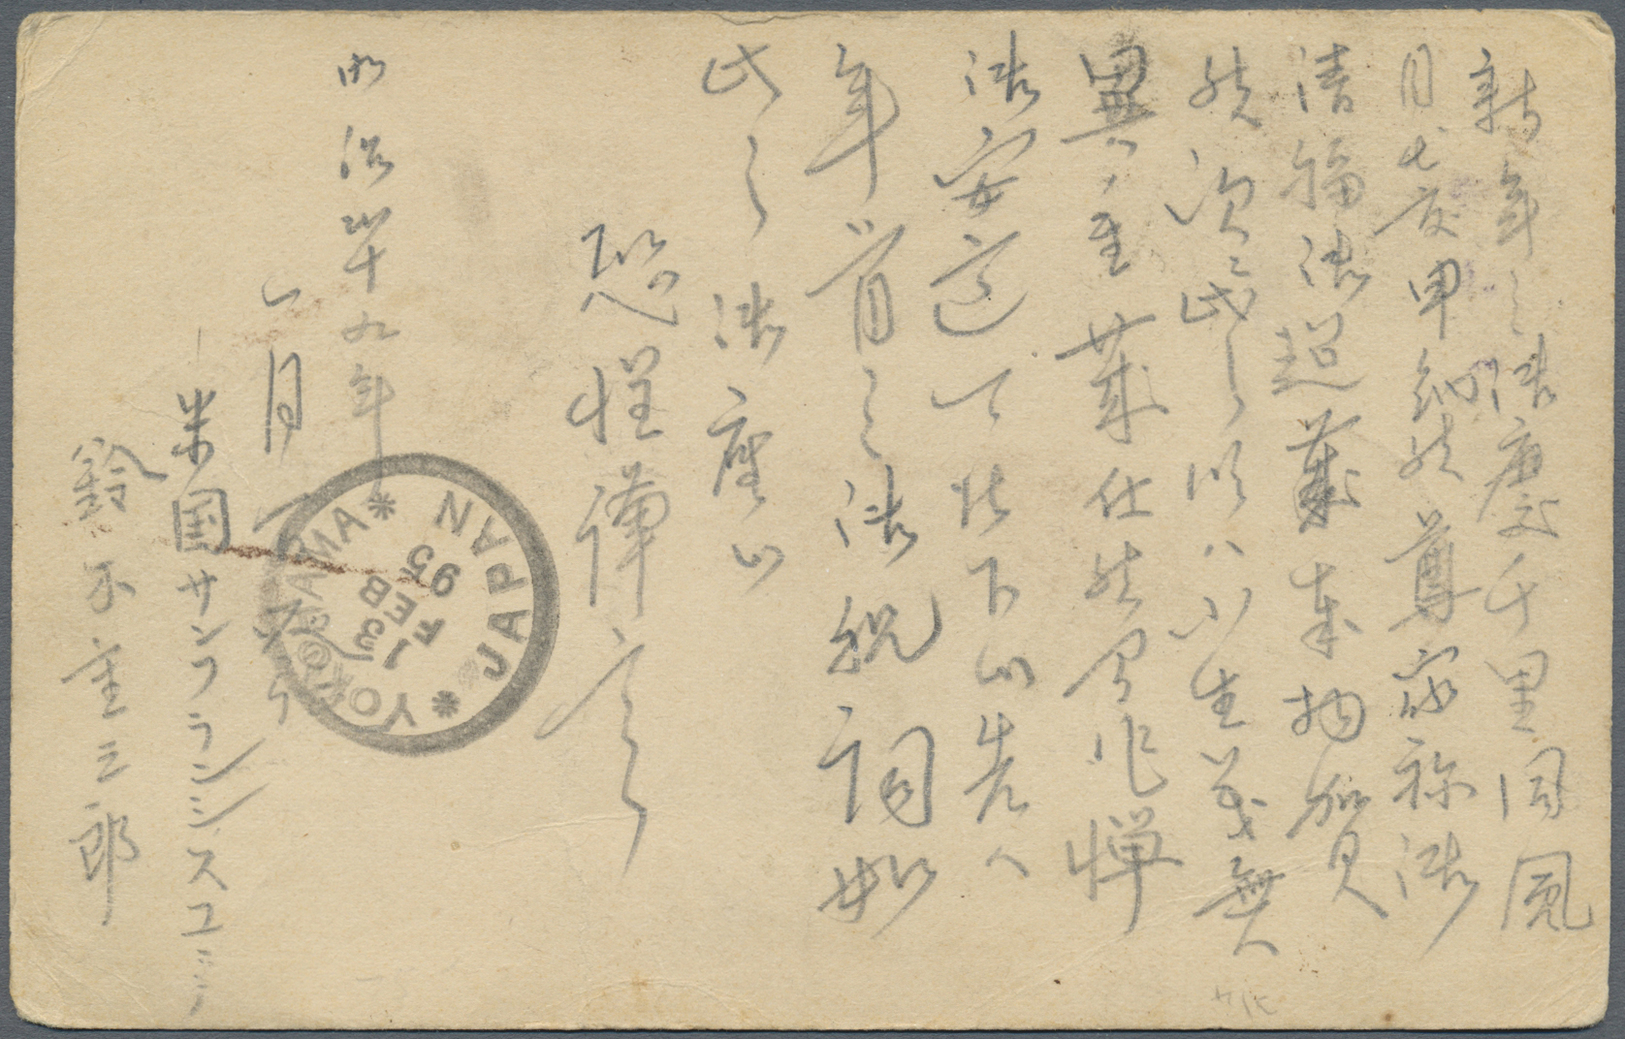 新年之御慶千里同風
目出度申納候尊家御
清福御超歳奉賀
候次ニ小生義無
異重歳仕候間乍憚
御安意可被下候先ハ
年首之御祝詞如
此御座候
恐惶謹言
明治十九年
一月
米国サンフランシスコニテ
鈴木重三郎
YOKOHAMA
JAPAN
13
FEB
95